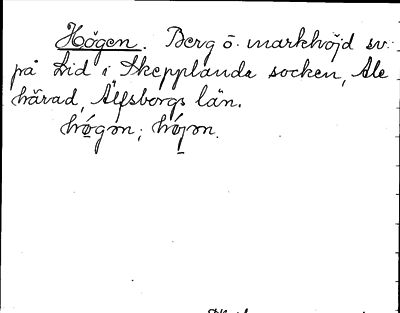 Högen. Berg o. markhöjd sv.
på Lid i Skepplanda socken, Ale
härad, Älfsborgs län.
hǿ̨gən; hǿ̨jən.